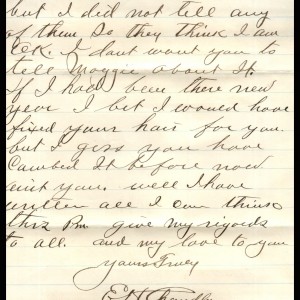 but I did not tell any
of them so they think I am
I dant want you to
tell Maggie about It.
If I had been there new
year I bet I would have
fixed your hair for you.
but I gess you have
Cambed It before now
aint you. well I have
written all I can think
this Pm. give my rigords
to all. and my love to you
yours Truey